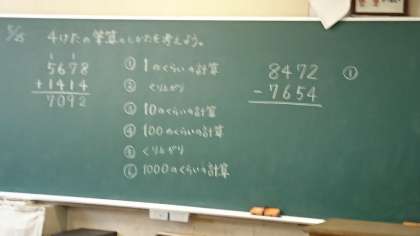 5/25 4けたの筆算のしかたを考えよう。
1 1
5678
+1414
7092
① 1のくらいの計算
② くり上がり
③ 10のくらいの計算
④ 100のくらいの計算
⑤ くり上がり
⑥ 1000のくらいの計算
8472
-7654
①